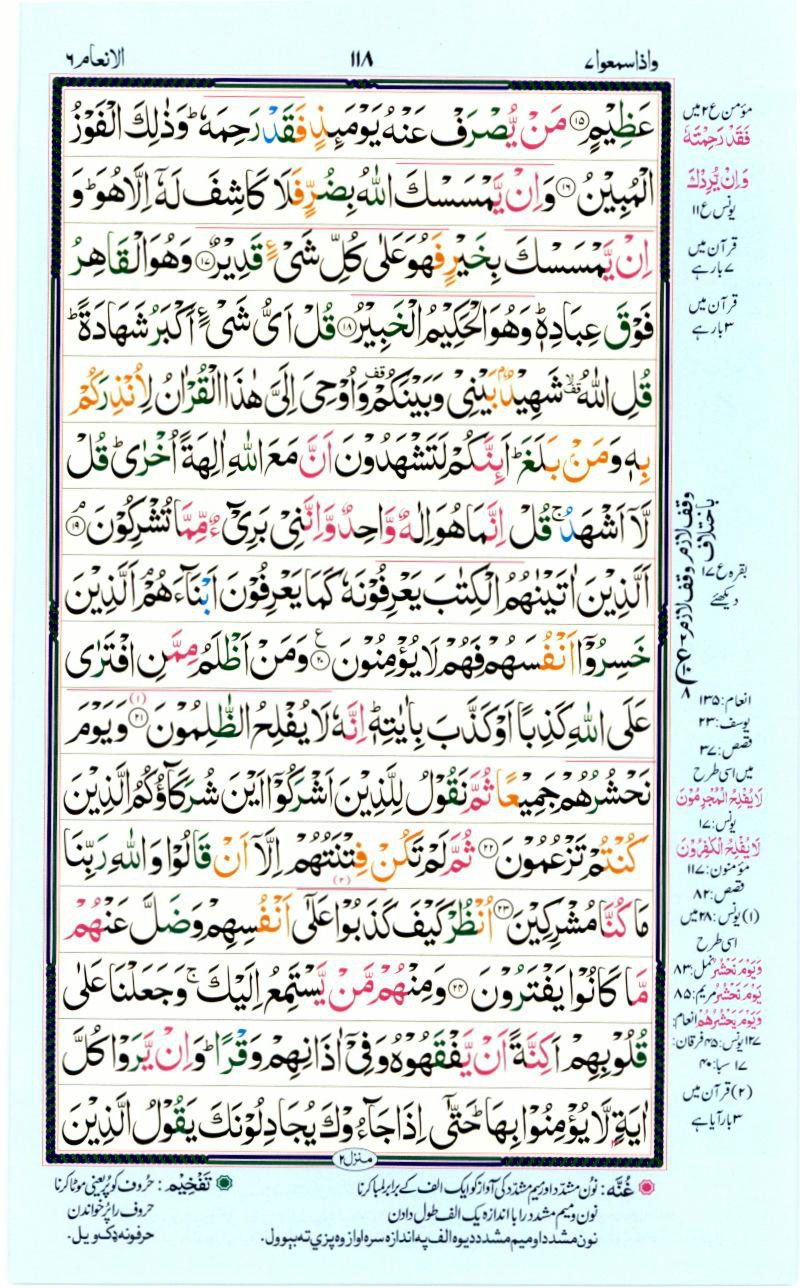 واذاسمعوا۷
۱۱۸
الانعام۶
عَظِیْمٍ ۟۱۵ مَنْ یُّصْرَفْ عَنْهُ یَوْمَىِٕذٍ فَقَدْ رَحِمَهٗ ؕ وَذٰلِكَ الْفَوْزُ
الْمُبِیْنُ ۟۱۶ وَاِنْ یَّمْسَسْكَ اللّٰهُ بِضُرٍّ فَلَا كَاشِفَ لَهٗۤ اِلَّا هُوَ ؕ وَ
اِنْ یَّمْسَسْكَ بِخَیْرٍ فَهُوَ عَلٰی كُلِّ شَیْءٍ قَدِیْرٌ ۟۱۷ وَهُوَ الْقَاهِرُ
فَوْقَ عِبَادِهٖ ؕ وَهُوَ الْحَكِیْمُ الْخَبِیْرُ ۟۱۸ قُلْ اَیُّ شَیْءٍ اَكْبَرُ شَهَادَةً ؕ
قُلِ اللّٰهُ ۫ۙ شَهِیْدٌۢ بَیْنِیْ وَبَیْنَكُمْ ۫ وَاُوْحِیَ اِلَیَّ هٰذَا الْقُرْاٰنُ لِاُنْذِرَكُمْ
بِهٖ وَمَنْۢ بَلَغَ ؕ اَىِٕنَّكُمْ لَتَشْهَدُوْنَ اَنَّ مَعَ اللّٰهِ اٰلِهَةً اُخْرٰی ؕ قُلْ
لَّاۤ اَشْهَدُ ۚ قُلْ اِنَّمَا هُوَ اِلٰهٌ وَّاحِدٌ وَّاِنَّنِیْ بَرِیْٓءٌ مِّمَّا تُشْرِكُوْنَ ۟ۘ۱۹
اَلَّذِیْنَ اٰتَیْنٰهُمُ الْكِتٰبَ یَعْرِفُوْنَهٗ كَمَا یَعْرِفُوْنَ اَبْنَآءَهُمْ ۘ اَلَّذِیْنَ
خَسِرُوْۤا اَنْفُسَهُمْ فَهُمْ لَا یُؤْمِنُوْنَ ۟۲۰ وَمَنْ اَظْلَمُ مِمَّنِ افْتَرٰی
عَلَی اللّٰهِ كَذِبًا اَوْ كَذَّبَ بِاٰیٰتِهٖ ؕ اِنَّهٗ لَا یُفْلِحُ الظّٰلِمُوْنَ ۟۲۱ (۱) وَیَوْمَ
نَحْشُرُهُمْ جَمِیْعًا ثُمَّ نَقُوْلُ لِلَّذِیْنَ اَشْرَكُوْۤا اَیْنَ شُرَكَآؤُكُمُ الَّذِیْنَ
كُنْتُمْ تَزْعُمُوْنَ ۟۲۲ ثُمَّ لَمْ تَكُنْ فِتْنَتُهُمْ اِلَّاۤ اَنْ قَالُوْا وَاللّٰهِ رَبِّنَا
(۲)
مَا كُنَّا مُشْرِكِیْنَ ۟۲۳ اُنْظُرْ كَیْفَ كَذَبُوْا عَلٰۤی اَنْفُسِهِمْ وَضَلَّ عَنْهُمْ
مَّا كَانُوْا یَفْتَرُوْنَ ۟۲۴ وَمِنْهُمْ مَّنْ یَّسْتَمِعُ اِلَیْكَ ۚ وَجَعَلْنَا عَلٰی
قُلُوْبِهِمْ اَكِنَّةً اَنْ یَّفْقَهُوْهُ وَفِیْۤ اٰذَانِهِمْ وَقْرًا ؕ وَاِنْ یَّرَوْا كُلَّ
اٰیَةٍ لَّا یُؤْمِنُوْا بِهَا ؕ حَتّٰۤی اِذَا جَآءُوْكَ یُجَادِلُوْنَكَ یَقُوْلُ الَّذِیْنَ
منزل۲
مؤمن ع۲ میں
فَقَدْ رَحِمْتَهٗ
وَاِنْ یُّرِدْكَ
یونس ع۱۱
قرآن میں
۷ بار ہے
قرآن میں
۳ بار ہے
وقف لازم وقف لازم
باختلاف
بقرہ ع۱۷
دیکھئے
انعام:۱۳۵
یوسف:۲۳
قصص:۳۷
میں اسی طرح
لَا یُفْلِحُ الْمُجْرِمُوْنَ
یونس:۱۷
لَا یُفْلِحُ الْكٰفِرُوْنَ
مؤمنون:۱۱۷
قصص:۸۲
(۱) یونس:۲۸ میں
اسی طرح
وَیَوْمَ نَحْشُرُ نمل:۸۳
یَوْمَ نَحْشُرُ مریم:۸۵
وَیَوْمَ یَحْشُرُهُمْ انعام:
۱۲۷ یونس:۴۵ فرقان:
۱۷ سبا:۴۰
(۲) قرآن میں
۳ بار آیا ہے
غُنَّه: نون مشدد اور میم مشدد کی آواز کو ایک الف کے برابر لمبا کرنا
نون و میم مشدد را با اندازہ یک الف طول دادن
نون مشدد او میم مشدد دیوه الف په اندازه سره اواز وه پزې ته بېوول.
تَفْخِیْم: حروف کو پُر یعنی موٹا کرنا
حروف را پُر خواندن
حرفونه ډک ویل.